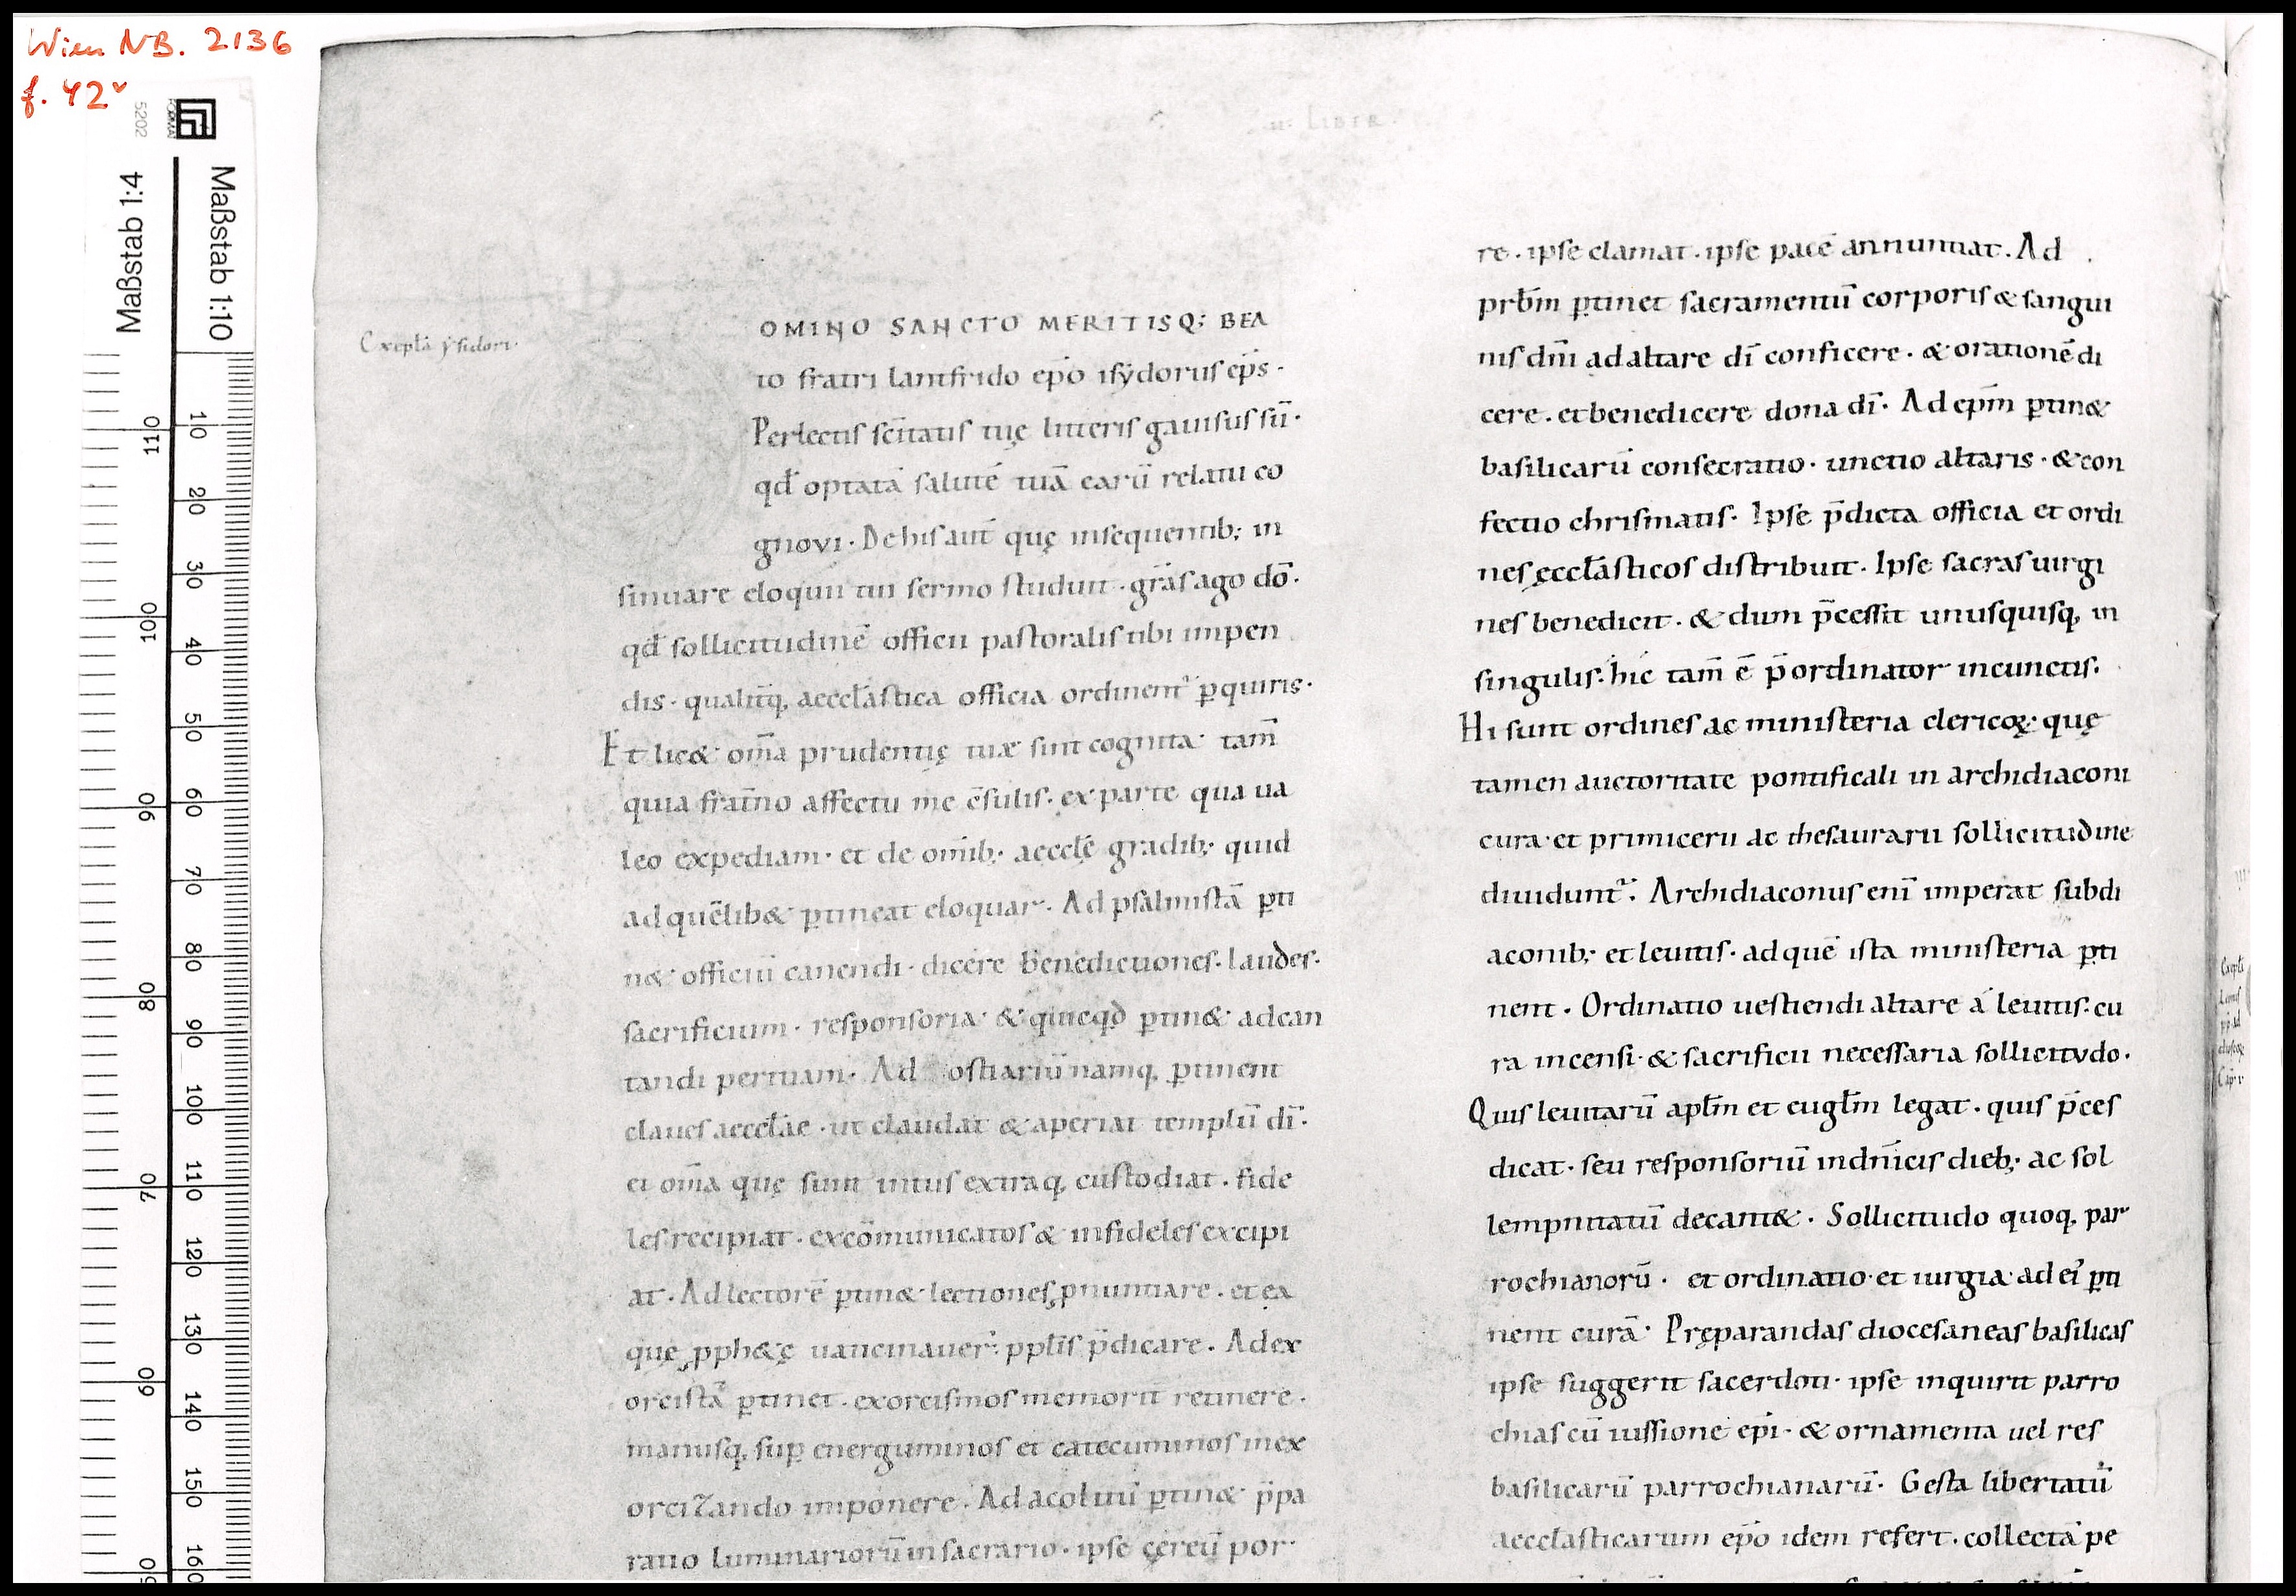 Wien NB. 2136
f. 42v
5202
Maßstab 1:4
Maßstab 1:10
LIBER
Exepla ysidori·
OMINO SANCTO MERITISQ; BEA
to fratri lantfrido ep̄o isẏdorus ep̄s·
Perlectis sc̄itatis tuę litteris gauisus sū·
qđ optatā salutē tuā earū relatu co
gnovi· De his aut̄ quę insequentib; in
sinuare eloquii tui sermo studuit· gr̄as ago dō·
qđ sollicitudinē officii pastoralis tibi impen
dis· qualit̄q, aeccl̄astica officia ordinent᷑ ꝑquiris·
Et lic& om̄a prudentię tuæ sint cognita· tam̄
quia frat̄no affectu me c̄sulis· ex parte qua ua
leo expediam· et de om̄ib; aecclę̄ gradib; quid
ad quēlib& ꝑtineat eloquar· Ad psalmistā ꝑti
n& officiū canendi· dicere benedictiones· laudes·
sacrificium· responsoria· & quicqđ ꝑtin& ad can
tandi peritiam· Ad ostiariū namq, ꝑtinent
claues aeccl̄ae· ut claudat & aperiat templū dī·
et om̄a quę sunt intus extraq, custodiat· fide
les recipiat· excōmunicatos & infideles excipi
at· Ad lectorē ꝑtin& lectiones ꝓnuntiare· et ea
quę ꝓph&ę uaticinauer̄· ppl̄is p̄dicare· Ad ex
orcistā ꝑtinet· exorcismos memorit̄ retinere·
manusq, suꝑ energuminos et catecuminos in ex
orcizando imponere· Ad acolitū ꝑtin& p̄pa
ratio luminariorū in sacrario· ipse cęreū por
re· ipse clamat· ipse pacē annuntiat· Ad
prb̄m ꝑtinet sacramentū corporis & sangui
nis dn̄i ad altare dī conficere· & orationē di
cere· et benedicere dona dī· Ad ep̄m ꝑtin&
basilicarū consecratio· unctio altaris· & con
fectio chrismatis· Ipse p̄dicta officia et ordi
nes ęccl̄asticos distribuit· Ipse sacras uirgi
nes benedicit· & dum p̄cessit unusquisq, in
singulis· hic tam̄ ē p̄ordinator in cunctis·
Hi sunt ordines ac ministeria clericoꝝ· quę
tamen auctoritate pontificali in archidiaconi
cura· et primicerii ac thesaurarii sollicitudine
diuidunt᷑· Archidiaconus enī imperat subdi
aconib; et leuitis· ad quē ista ministeria ꝑti
nent· Ordinatio uestiendi altare á leuitis· cu
ra incensi· & sacrificii necessaria sollicitvdo·
Quis leuitarū apl̄m et eugl̄m legat· quis p̄ces
dicat· seu responsoriū in dn̄icis dieb; ac sol
lempnitatū decant&· Sollicitudo quoq, par
rochianorū· et ordinatio· et iurgia· ad ei᷑ ꝑti
nent curā· Pręparandas diocesaneas basilicas
ipse suggerit sacerdoti· ipse inquirit parro
chias cū iussione ep̄i· & ornamenta uel res
basilicarū parrochianarū· Gesta libertatū
aeccl̄asticarum ep̄o idem refert· collectā pe